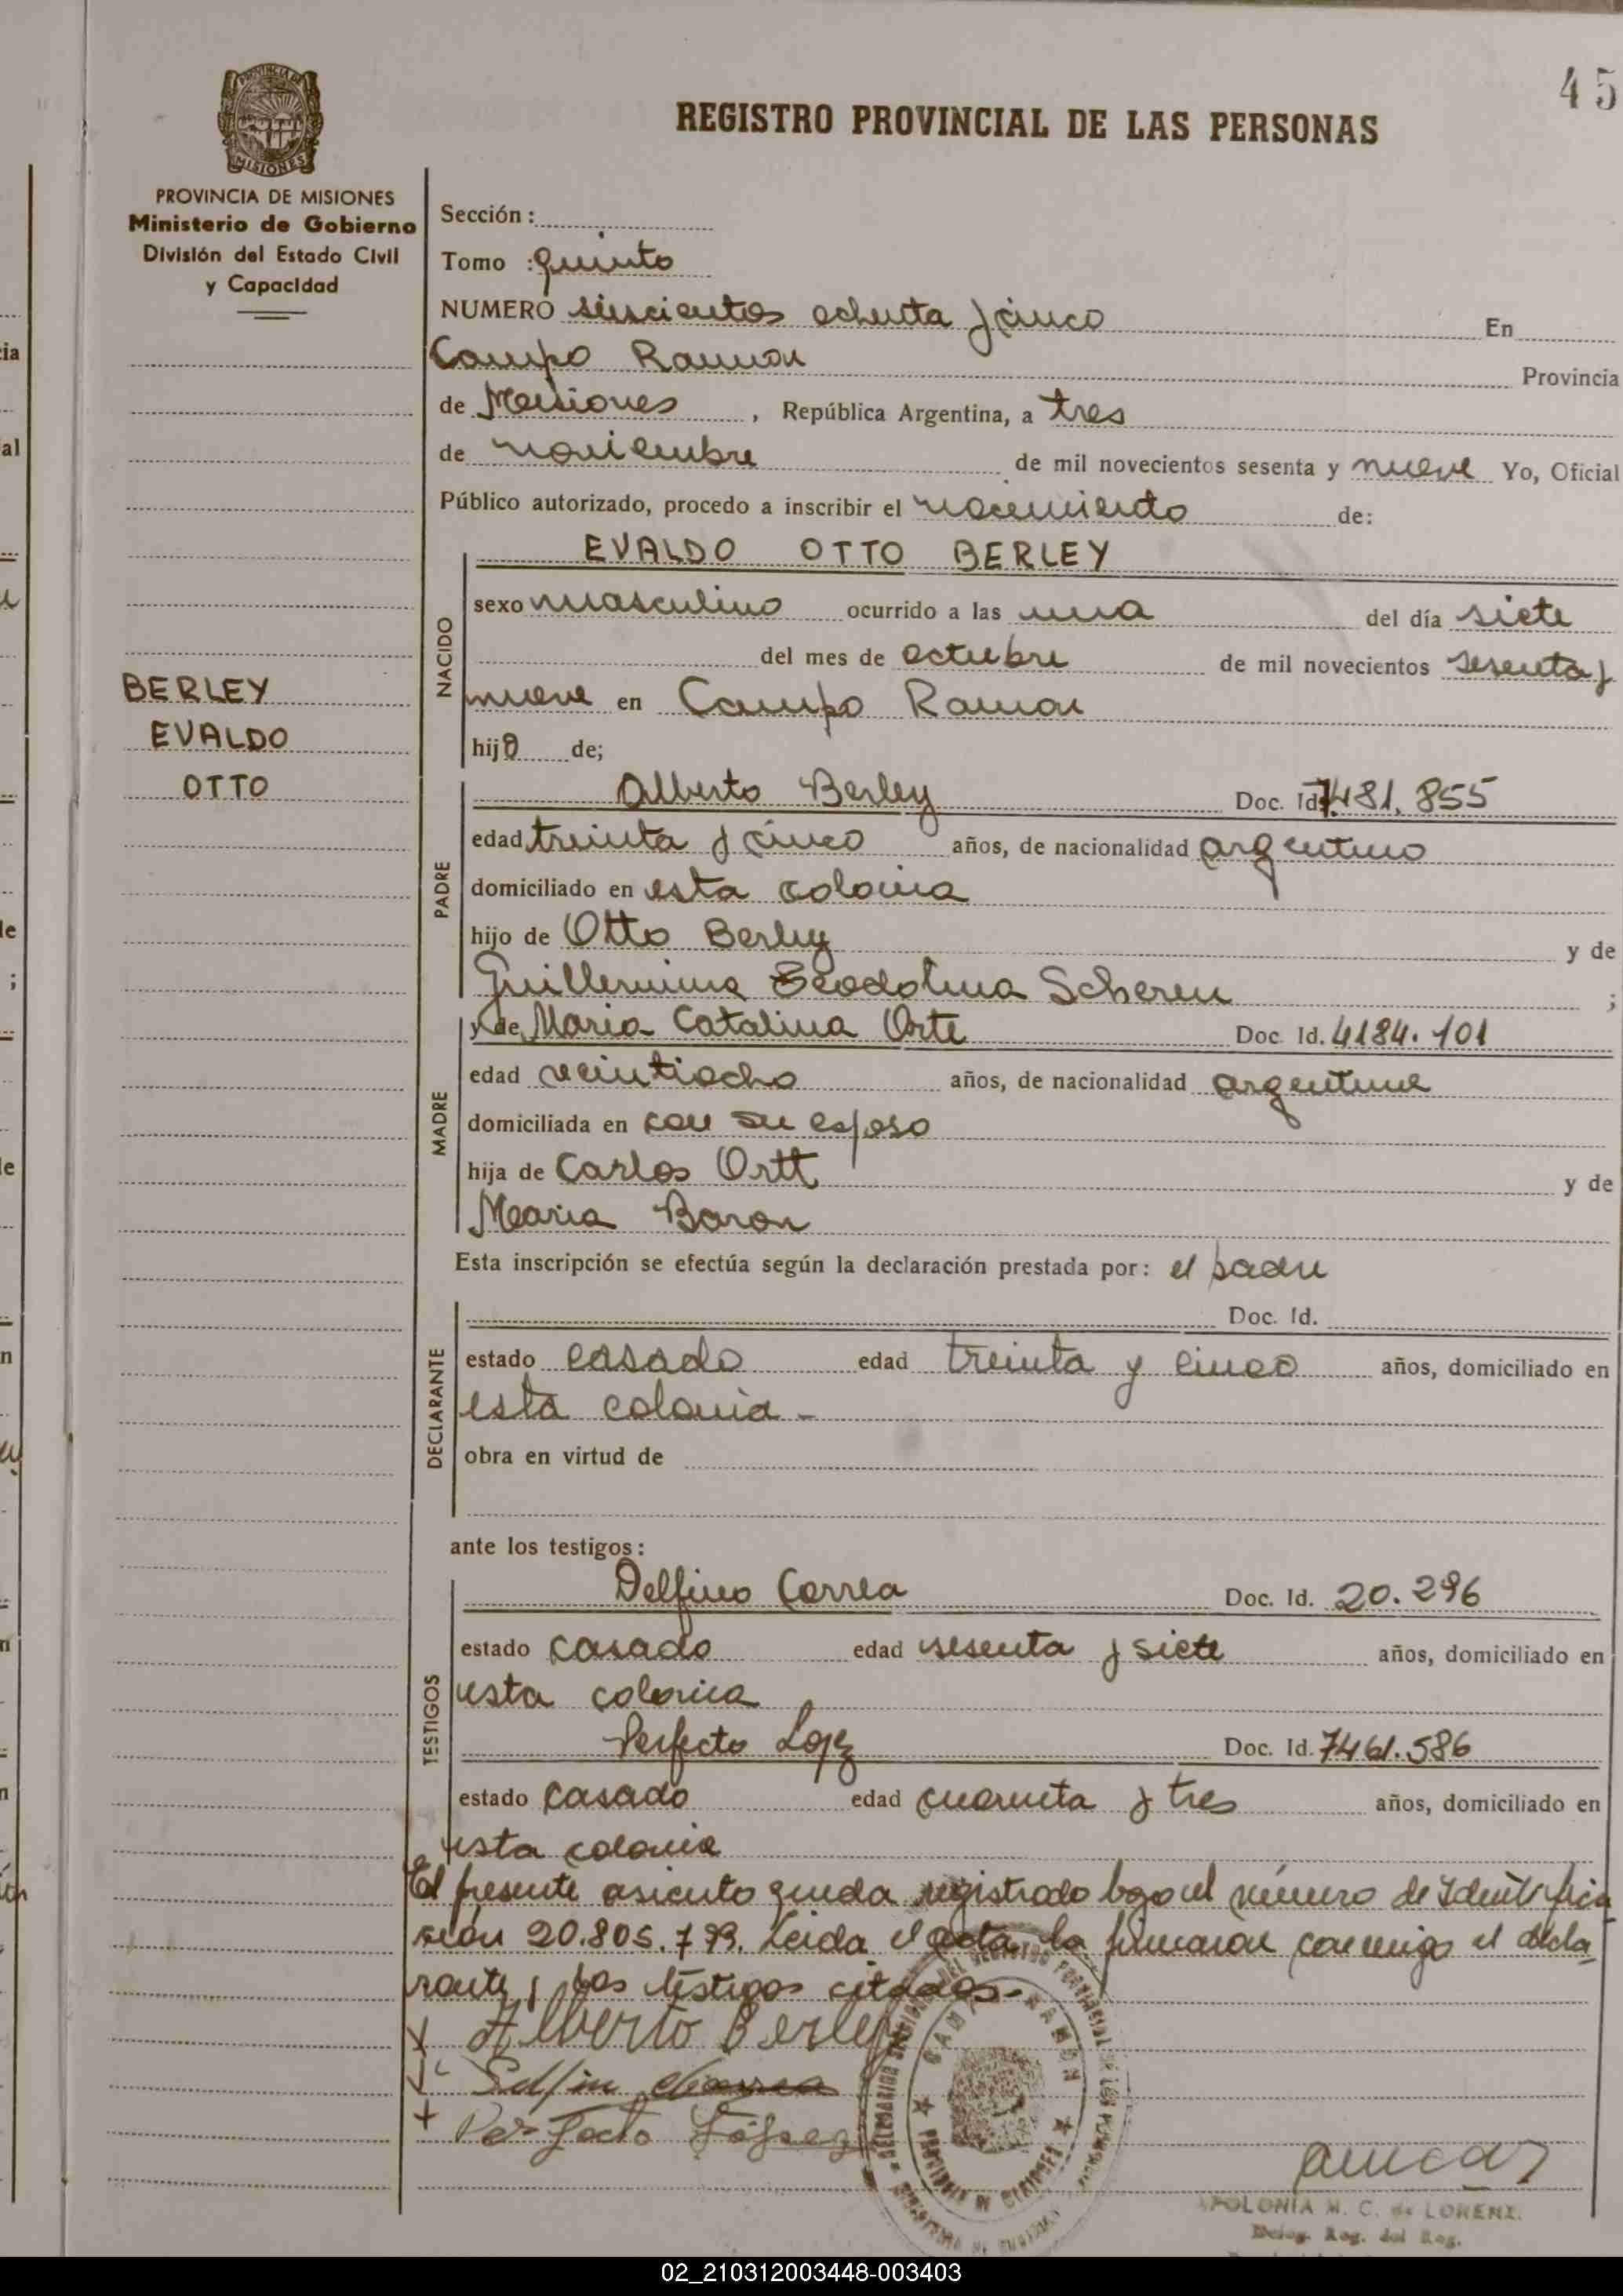 45
REGISTRO PROVINCIAL DE LAS PERSONAS
MISIONES
PROVINCIA DE MISIONES
Ministerio de Gobierno
División del Estado Civil
y Capacidad
BERLEY
EVALDO
OTTO
Sección :
Tomo : quinto
NUMERO seiscientos ochenta y cinco En
Campo Ramon Provincia
de Misiones , República Argentina, a tres
de noviembre de mil novecientos sesenta y nueve Yo, Oficial
Público autorizado, procedo a inscribir el nacimiento de:
NACIDO
EVALDO OTTO BERLEY
sexo masculino ocurrido a las una del día siete
del mes de octubre de mil novecientos sesenta y
nueve en Campo Ramon
hijo de;
PADRE
Alberto Berley Doc. Id. 7.481.855
edad treinta y cinco años, de nacionalidad argentino
domiciliado en esta colonia
hijo de Otto Berley y de
Guillermina Scheren ;
MADRE
y de Maria Catalina Orte Doc. Id. 4184.101
edad veintiocho años, de nacionalidad argentina
domiciliada en con su esposo
hija de Carlos Ortt y de
Maria Baron
Esta inscripción se efectúa según la declaración prestada por: el padre
DECLARANTE
Doc. Id.
estado casado edad treinta y cinco años, domiciliado en
esta colonia -
obra en virtud de
ante los testigos:
TESTIGOS
Delfino Correa Doc. Id. 20.296
estado casado edad sesenta y siete años, domiciliado en
esta colonia
Perfecto Lopez Doc. Id. 7461.586
estado casado edad cuarenta y tres años, domiciliado en
esta colonia
El presente asiento queda registrado bajo el número de Identifica
ción 20.805.799. Leida el acta la firmaron conmigo el decla
rante y los testigos citados.-
Alberto Berley
Perfecto López
CAMPO RAMON
PROVINCIA DE MISIONES
APOLONIA M. C. de LORENZ.
Deleg. Reg. del Reg.
02_210312003448-003403